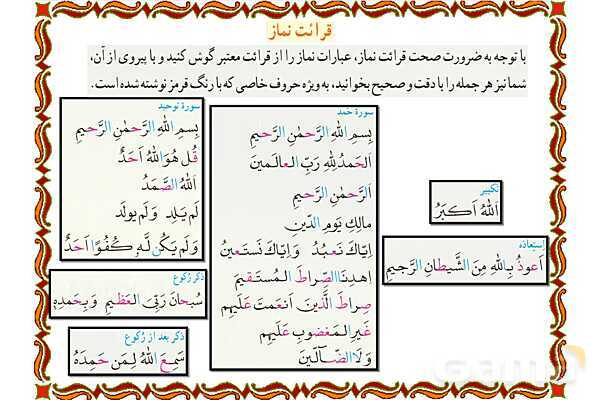 قرائت نماز
با توجه به ضرورت صحت قرائت نماز، عبارات نماز را از قرائت معتبر گوش کنید و با پیروی از آن،
شما نیز هر جمله را با دقت و صحیح بخوانید، به ویژه حروف خاصی که با رنگ قرمز نوشته شده است.
تکبیر
اَللهُ اَکبَرُ
اِستِعاذه
اَعوذُ بِاللهِ مِنَ الشَّیطانِ الرَّجیمِ
سورهٔ حمد
بِسمِ اللهِ الرَّحمٰنِ الرَّحیمِ
اَلحَمدُ لِلّٰهِ رَبِّ العالَمینَ
اَلرَّحمٰنِ الرَّحیمِ
مالِكِ یَومِ الدّینِ
اِیّاكَ نَعبُدُ وَ اِیّاكَ نَستَعینُ
اِهدِنَا الصِّراطَ المُستَقیمَ
صِراطَ الَّذینَ اَنعَمتَ عَلَیهِم
غَیرِ المَغضوبِ عَلَیهِم
وَ لَا الضّآلّینَ
سورهٔ توحید
بِسمِ اللهِ الرَّحمٰنِ الرَّحیمِ
قُل هُوَ اللهُ اَحَدٌ
اَللهُ الصَّمَدُ
لَم یَلِد وَ لَم یولَد
وَ لَم یَکُن لَهٗ کُفُوًا اَحَدٌ
ذکر رکوع
سُبحانَ رَبِّیَ العَظیمِ وَ بِحَمدِهٖ
ذکر بعد از رکوع
سَمِعَ اللهُ لِمَن حَمِدَهُ